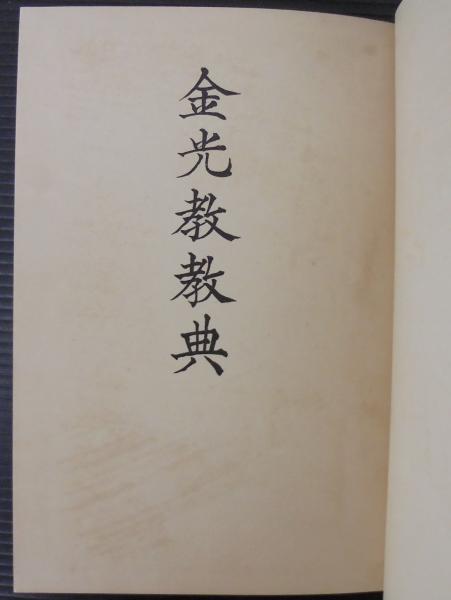 金光教教典